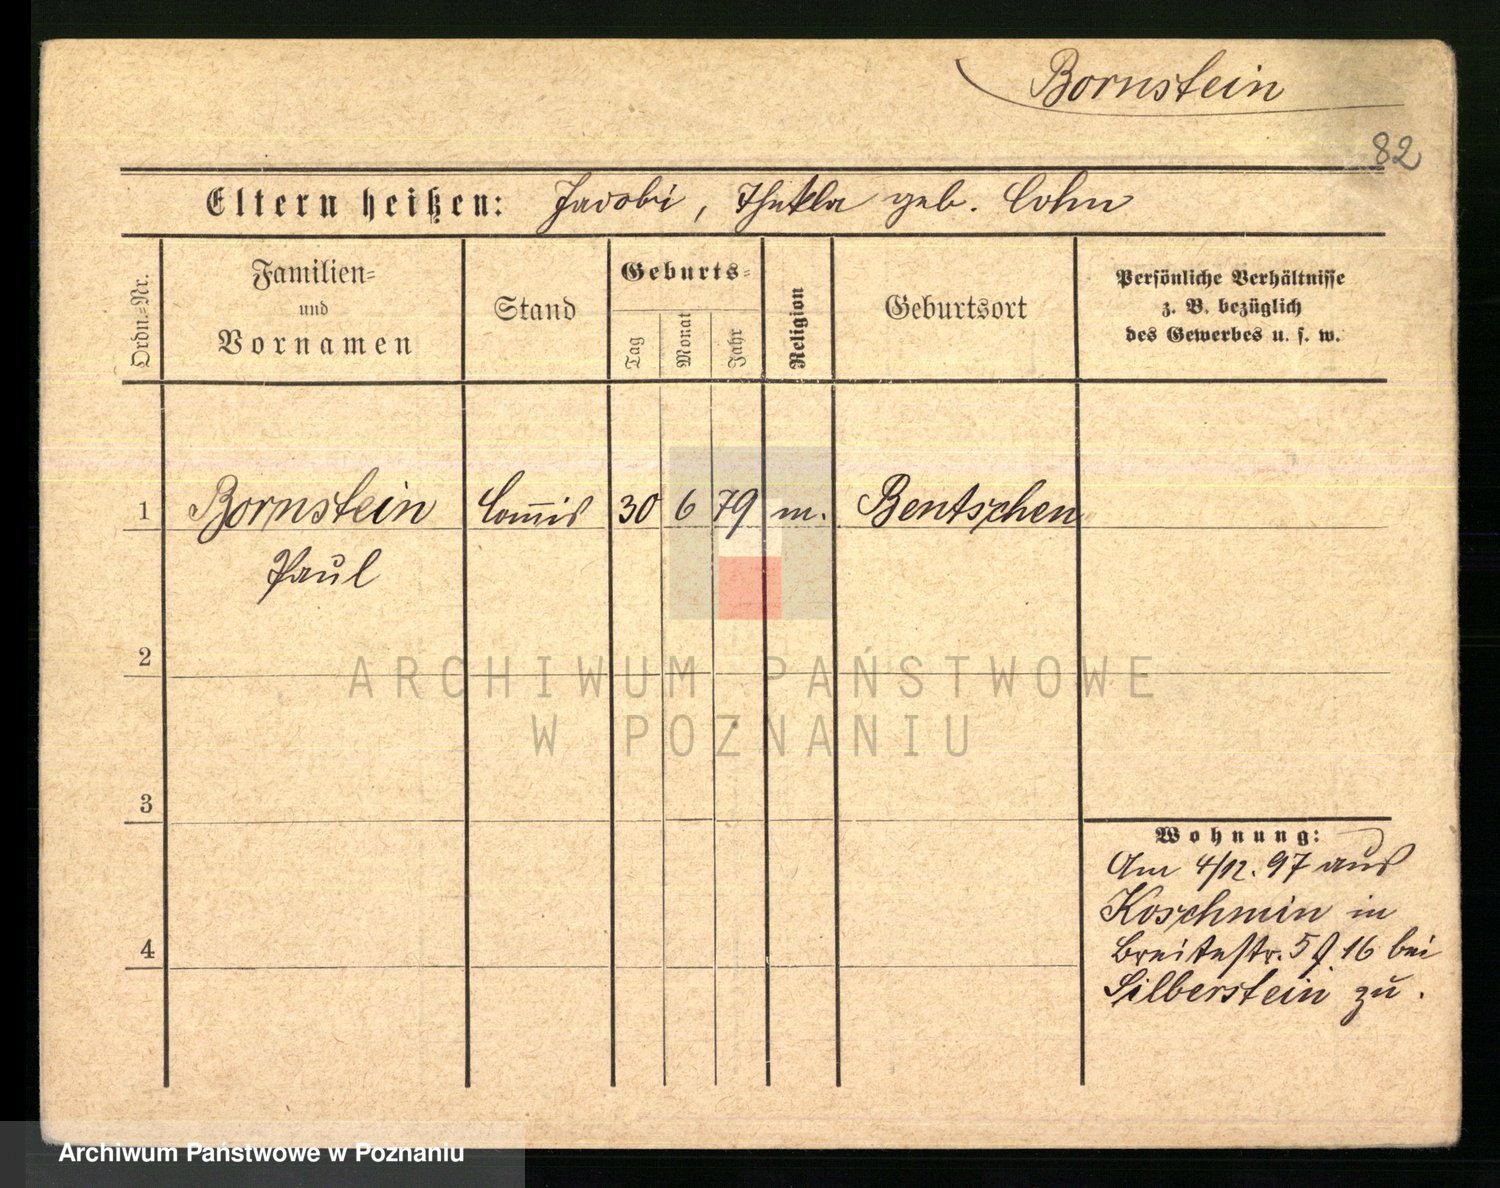 Bornstein
82
Eltern heißen: Jacobi, Thekla geb. Cohn
Ordn.=Nr.
Familien=
und
Vornamen
Stand
Geburts=
Tag
Monat
Jahr
Religion
Geburtsort
Persönliche Verhältnisse
z. B. bezüglich
des Gewerbes u. s. w.
1 Bornstein Com̅is 30 6 79 m. Bentschen
Paul
2
ARCHIWUM PAŃSTWOWE
W POZNANIU
3
Wohnung:
Am 4/12. 97 aus
Koschmin in
4
Breitestr. 5 16 bei
Silberstein zu.
Archiwum Państwowe w Poznaniu